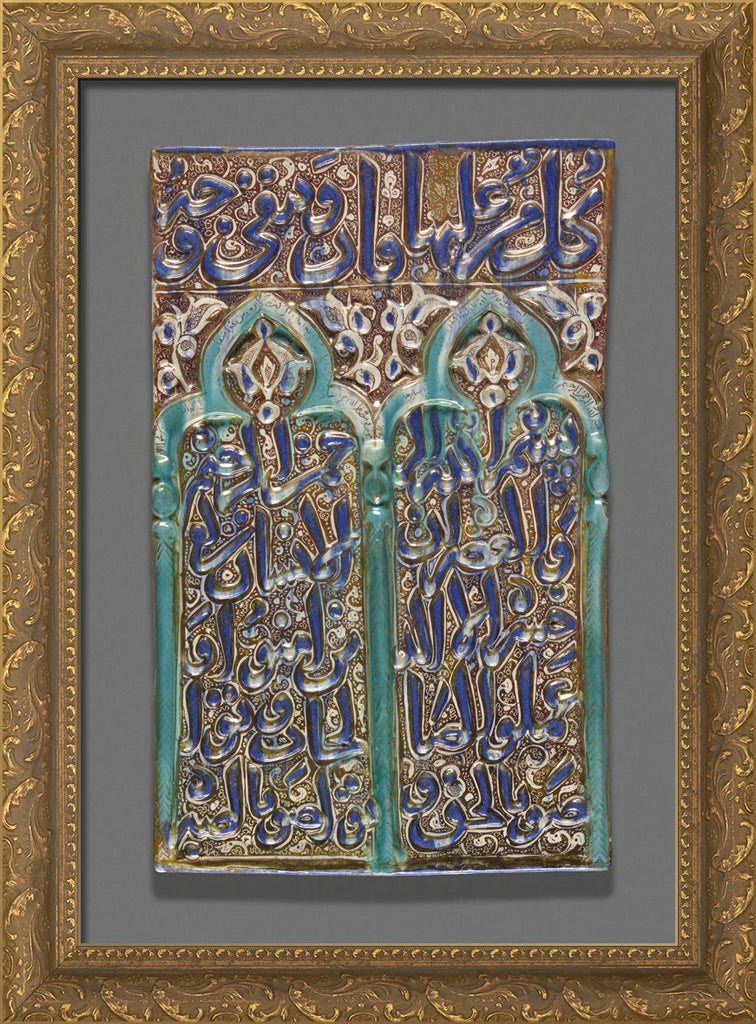 كل من عليها فان ويبقى وجه
بسم الله الر حمن الرحيم
والعصر ان الانسان لفى
خسر الا الذ ين امنوا و
عملوا الصا لحات وتوا
صوا بالحق و تواصوا بالصبر